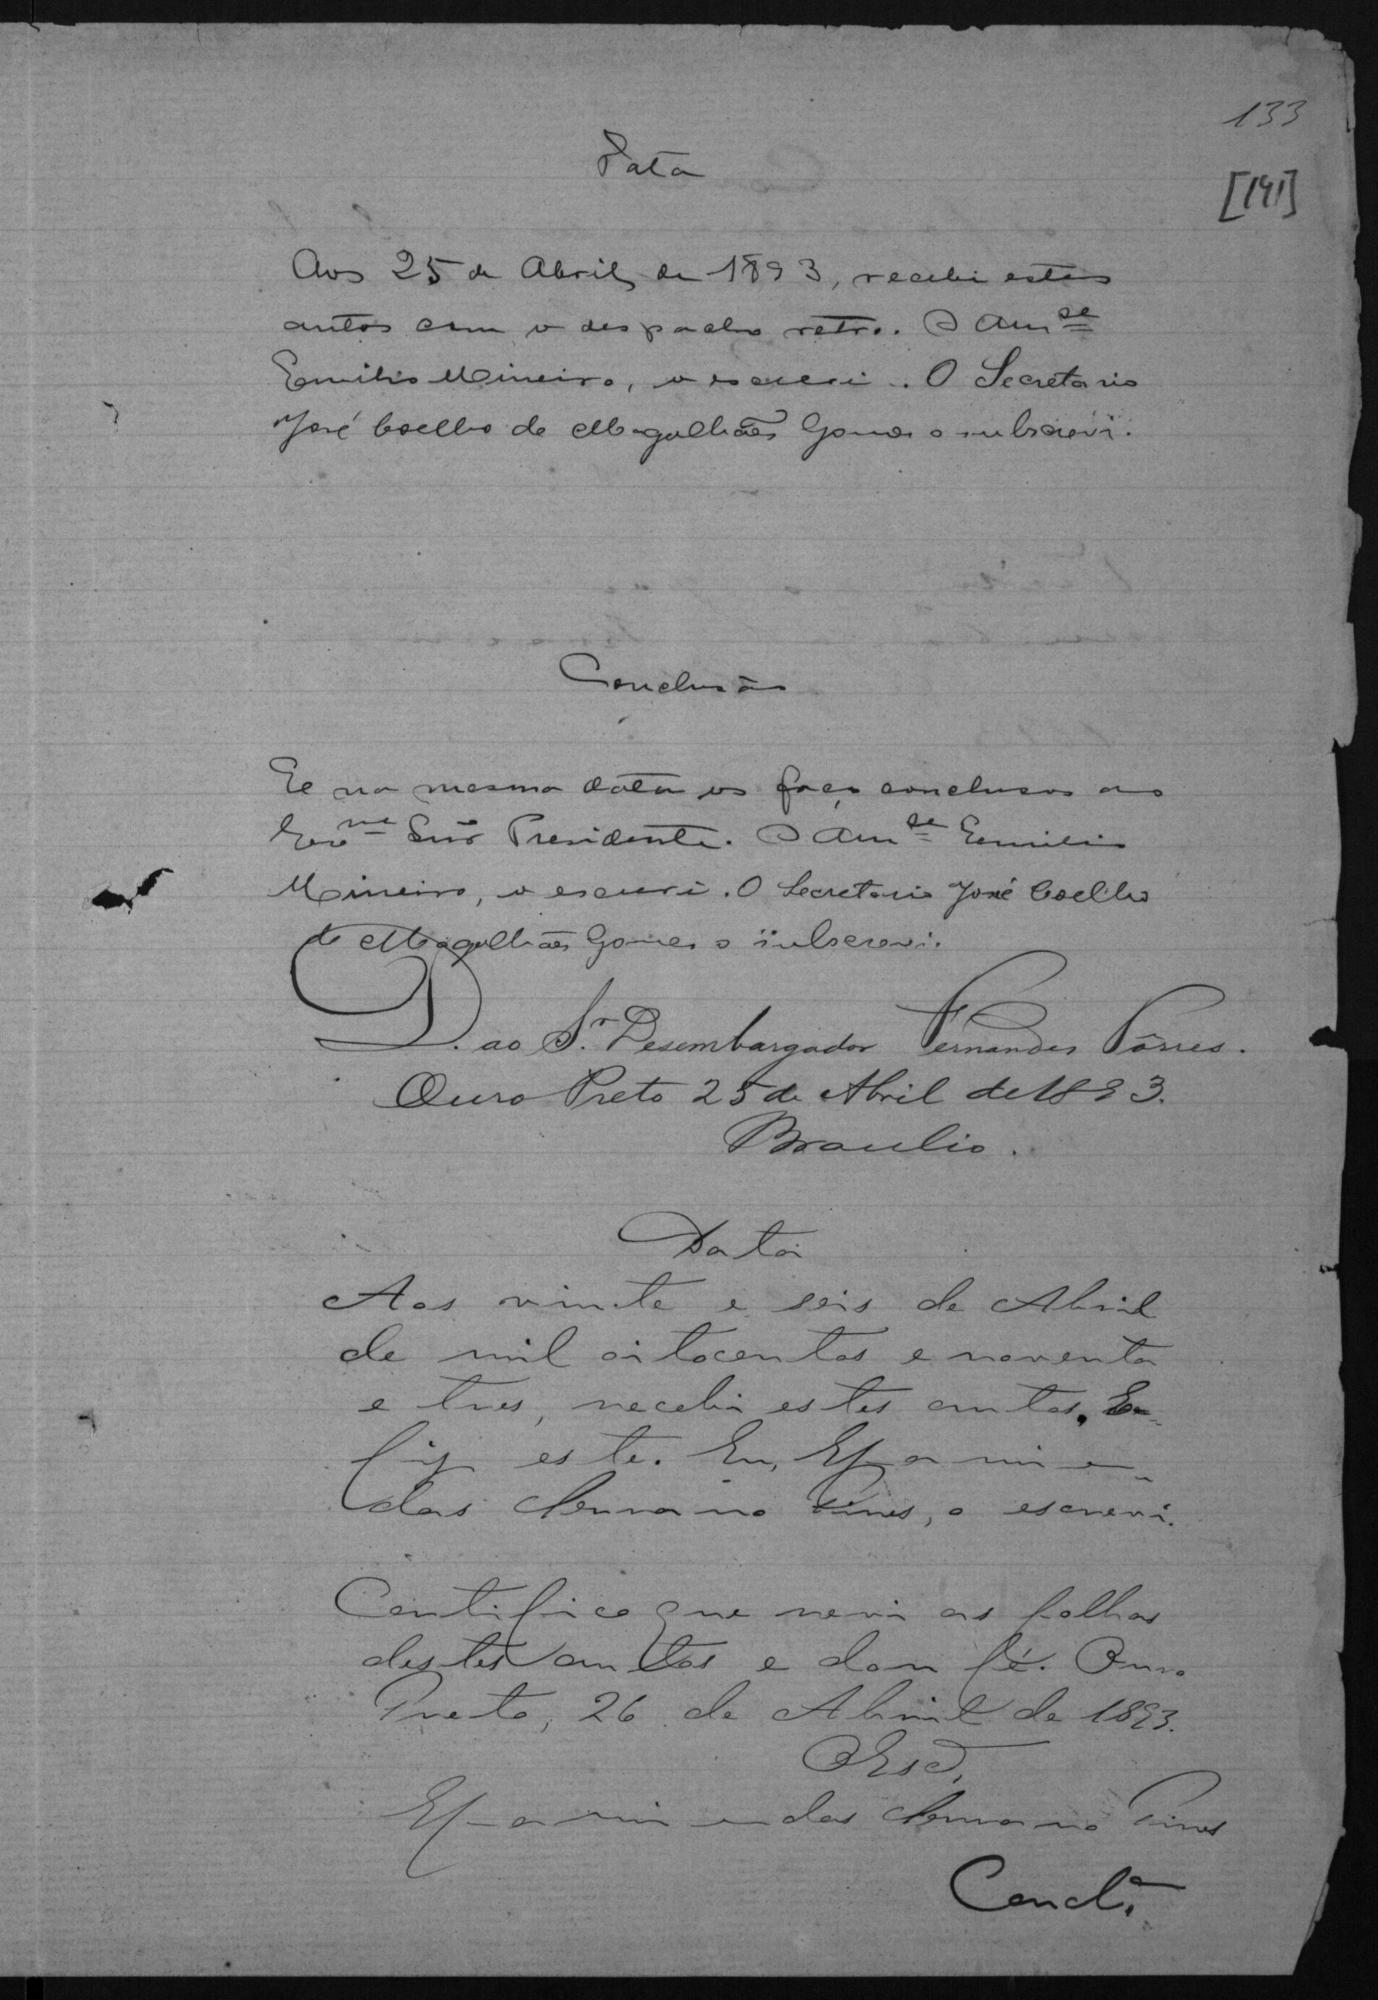 133
[141]
Data
Aos 25 de Abril de 1893, recebi estes
autos com o despacho retro. O Amse
Emilio Mineiro, o escrevi. O Secretario
José Coelho de Magalhães Gomes o subscrevi.
Conclusão
E na mesma data os faço conclusos ao
Exmo Snr Presidente. O Amse Emilio
Mineiro, o escrevi. O Secretario José Coelho
de Magalhães Gomes o subscrevi.
D. ao Sr. Desembargador Fernandes Tôrres.
Ouro Preto 25 de Abril de 1893.
Braulio.
Data
Aos vinte e seis de Abril
de mil oitocentos e noventa
e tres, recebi estes autos. E
fiz este. Eu, Epaminon-
das Pires, o escrevi.
Certifico que revi as folhas
destes autos e dou fé. Ouro
Preto, 26 de Abril de 1893.
O Esc.
Epaminondas Pires
Concl.